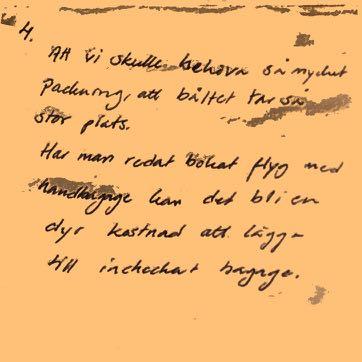 4.
Att vi skulle behöva så mycket
Packning, att bältet tar så
stor plats.
Har man redat bokat flyg med
handbagage kan det bli en
dyr kostnad att lägga
till incheckat bagage.